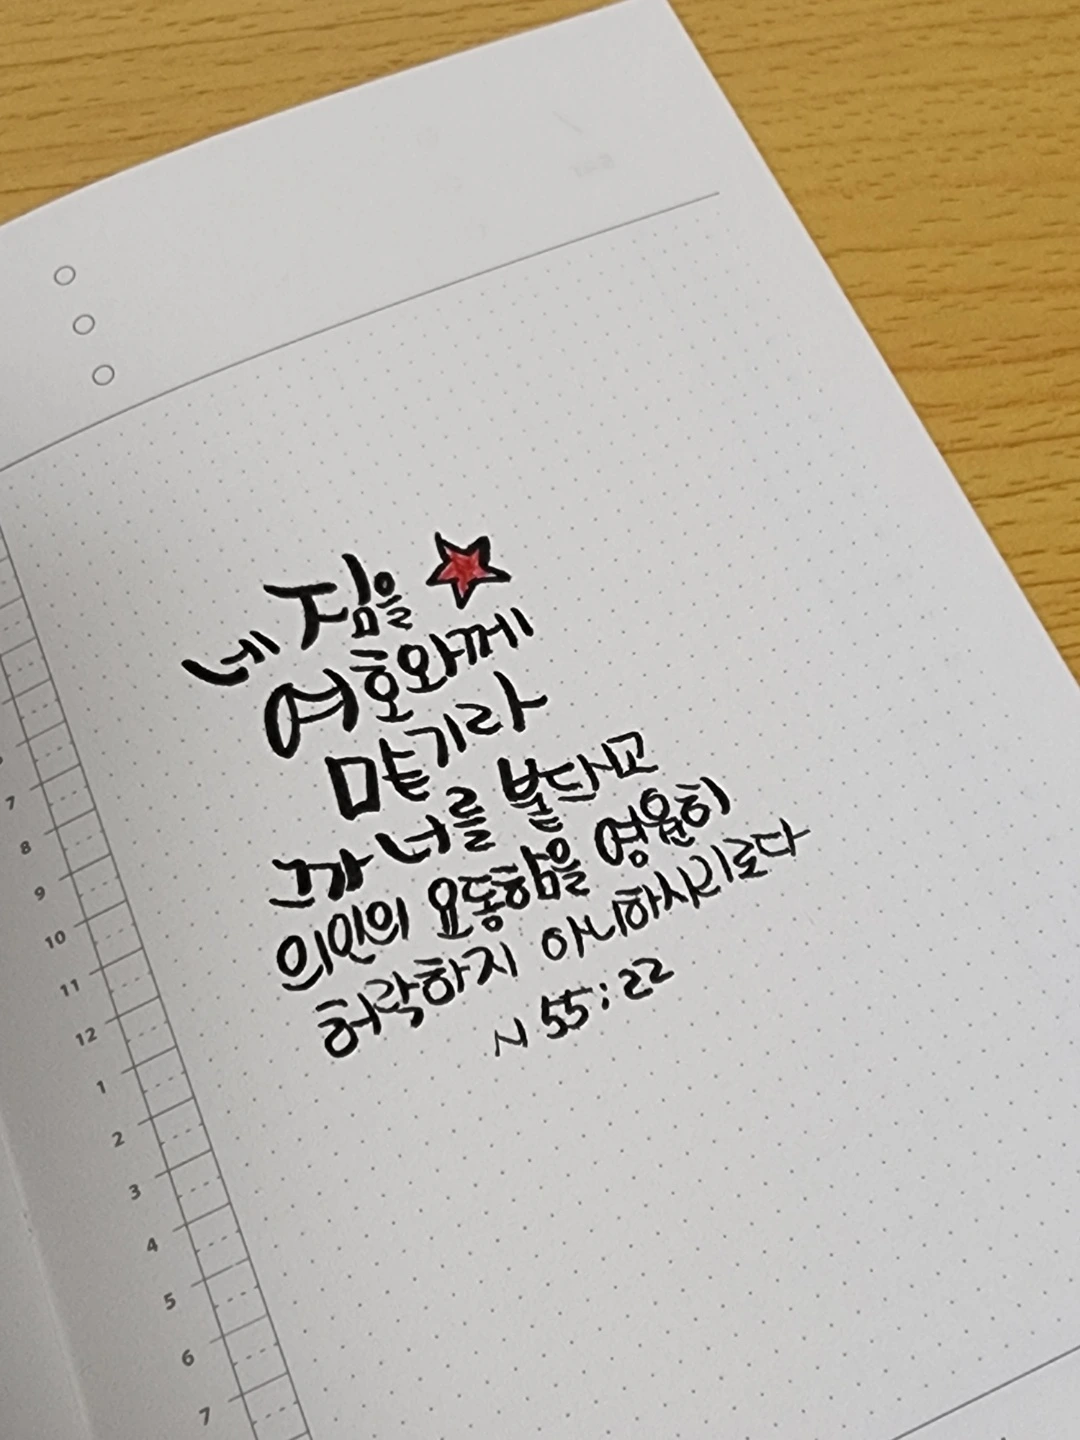 네 짐을
여호와께
맡기라
그가 너를 붙드시고
의인의 요동함을 영원히
허락하지 아니하시리로다
시 55:22
7
8
9
10
11
12
1
2
3
4
5
6
7